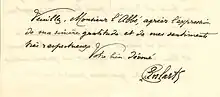 Veuillez, Monsieur l'Abbé, agréer l'expression
de ma sincère gratitude et de mes sentiments
très respectueux
Votre bien dévoué